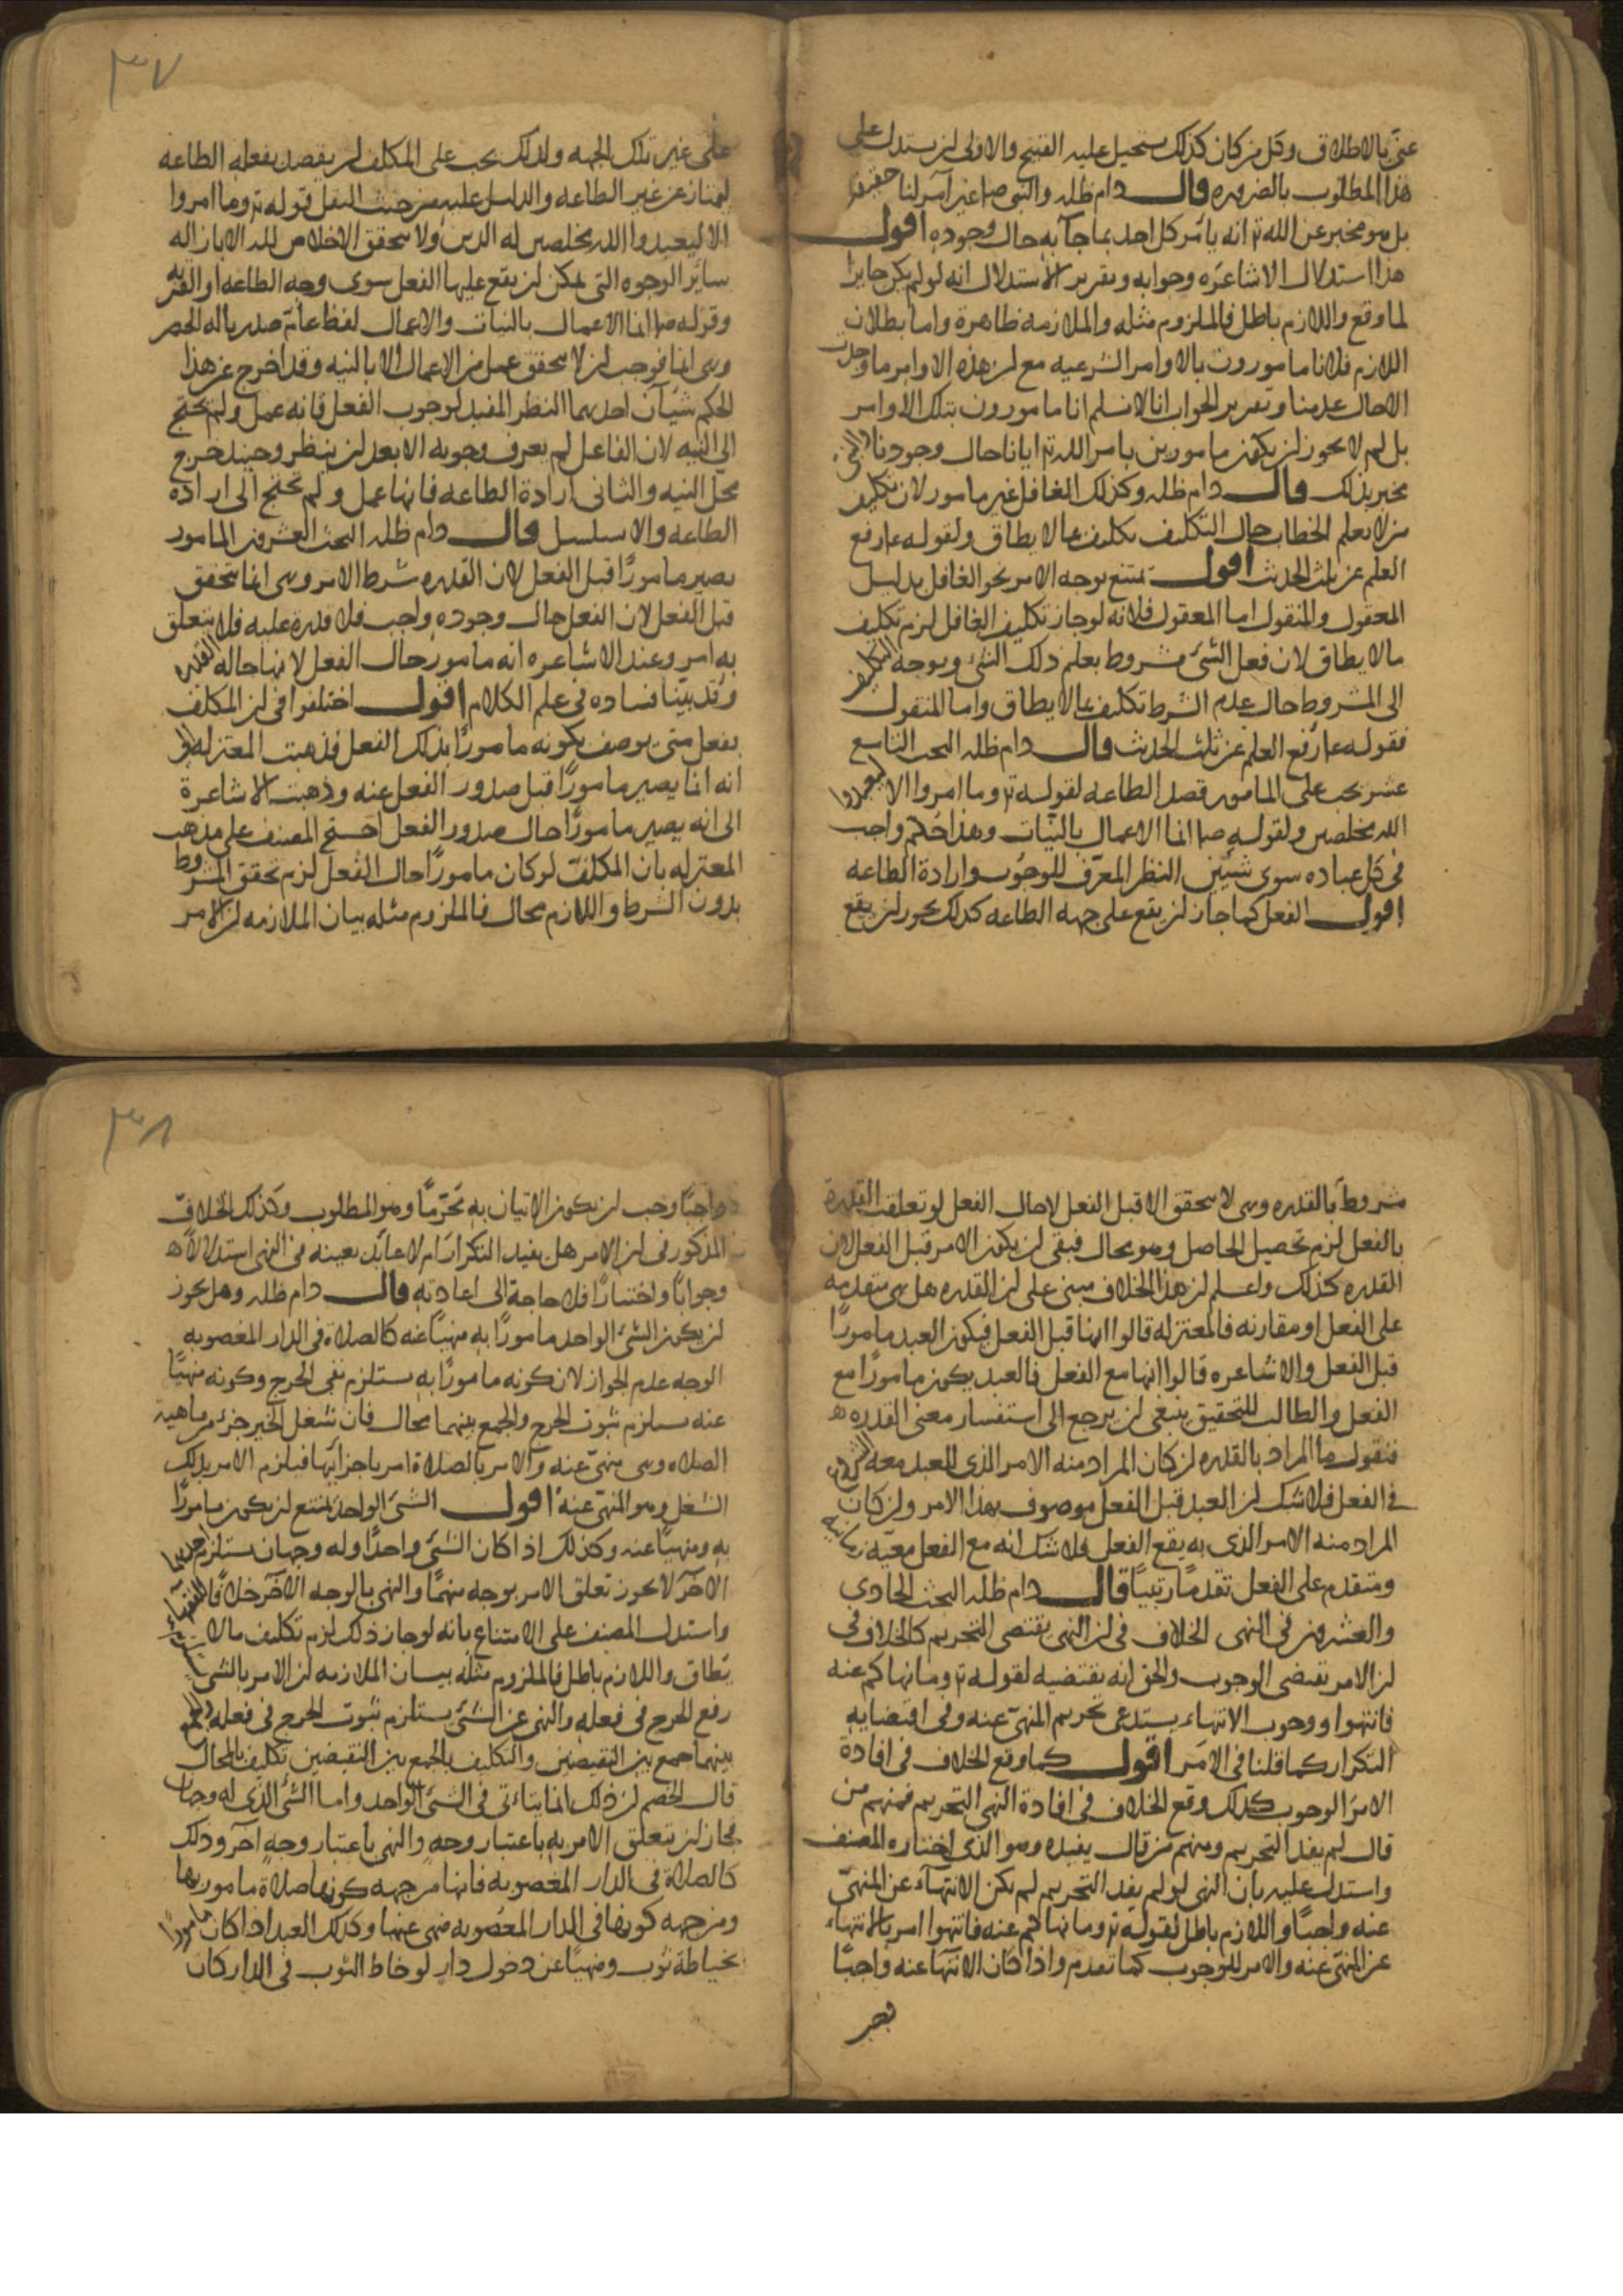 غنى بالاطلاق وكل من كان كذلك يستحيل عليه القبيح والاولى ان يستدل على
هذا المطلوب بالضروره قال دام ظله والنبي صلعم غير آمر لنا حقيقة
بل هو مخبر عن الله تع انه يأمر كل احد بما جآ به حال وجوده اقول
هذا استدلال الاشاعره وجوابه وتقرير الاستدلال انه لو لم يكن جايزا
لما وقع واللازم باطل فالملزوم مثله والملازمه ظاهرة واما بطلان
اللازم فلانا مامورون بالاوامر الشرعيه مع ان هذه الاوامر ما وجدت
الا حال عدمنا وتقرير الجواب انا لا نسلم انا مامورون بتلك الاوامر
بل لم لا يجوز ان يكون مامورين بامر الله تع ايانا حال وجودنا والنبي
مخبر بذلك قال دام ظله وكذلك الغافل غير مامور لان تكليف
من لا يعلم الخطاب حال التكليف تكليف بما لا يطاق ولقوله عم رفع
القلم عن ثلث الحديث اقول يمتنع توجه الامر نحو الغافل بدليل
المعقول والمنقول اما المعقول فلانه لو جاز تكليف الغافل لزم تكليف
ما لا يطاق لان فعل الشئ مشروط بعلم ذلك الشئ وتوجه التكليف
الى المشروط حال عدم الشرط تكليف بما لا يطاق واما المنقول
فقوله عم رفع القلم عن ثلث الحديث قال دام ظله البحث التاسع
عشر يجب على المامور قصد الطاعه لقوله تع وما امروا الا ليعبدوا
الله مخلصين ولقوله صلعم انما الاعمال بالنيّات وهذا حكم واجب
فى كل عباده سوى شيئين النظر المعرّف للوجوب وارادة الطاعه
اقول الفعل كما جاز ان يقع على جهه الطاعه كذلك يجوز ان يقع
٣٧
على غير تلك الجهه ولذلك يجب على المكلف ان يقصد بفعله الطاعه
ليمتاز عن غير الطاعه والدليل عليه من حيث النقل قوله تع وما امروا
الا ليعبدوا الله مخلصين له الدين ولا يتحقق الاخلاص لله الا بازاله
سائر الوجوه التى يمكن ان يقع عليها الفعل سوى وجه الطاعه او القربه
وقوله صلعم انما الاعمال بالنيات والاعمال لفظ عام صدر باله الحصر
وهى انما فوجب ان لا يتحقق عمل من الاعمال الا بالنيه وقد اخرج عن هذا
الحكم شيآن احدهما النظر المفيد لوجوب الفعل فانه عمل ولم يحتج
الى النيه لان الفاعل لم يعرف وجوبه الا بعد ان ينظر وحينئذ خرج
محل النيه والثانى ارادة الطاعه فانها عمل ولم تحتج الى اراده
الطاعه والا تسلسل قال دام ظله البحث العشرون المامور
يصير مامورًا قبل الفعل لان القدره شرط الامر وهى انما تتحقق
قبل الفعل لان الفعل حال وجوده واجب فلا قدرة عليه فلا يتعلق
به امر وعند الاشاعره انه مامور حال الفعل لانها حاله القدره
وقد بيّنا فساده فى علم الكلام اقول اختلفوا فى ان المكلف
بفعل متى يوصف بكونه مامورًا بذلك الفعل فذهبت المعتزله الى
انه انما يصير مامورًا قبل صدور الفعل عنه وذهبت الاشاعرة
الى انه يصير مامورًا حال صدور الفعل احتج المصنف على مذهب
المعتزله بان المكلف لو كان مامورًا حال الفعل لزم تحقق المشروط
بدون الشرط واللازم محال فالملزوم مثله بيان الملازمه ان الامر
مشروط بالقدره وهى لا تتحقق الا قبل الفعل لا حال الفعل لو تعلقت القدرة
بالفعل لزم تحصيل الحاصل وهو محال فبقى ان يكون الامر قبل الفعل لان
القدره كذلك واعلم ان هذا الخلاف مبنى على ان القدره هل هى متقدمه
على الفعل او مقارنه فالمعتزله قالوا انها قبل الفعل فيكون العبد مامورًا
قبل الفعل والاشاعره قالوا انها مع الفعل فالعبد يكون مامورًا مع
الفعل والطالب للتحقيق ينبغى ان يرجع الى استفسار معنى القدره
فنقول ما المراد بالقدره ان كان المراد منه الامر الذى للعبد معه
فى الفعل فلا شك ان العبد قبل الفعل موصوف بهذا الامر وان كان
المراد منه الامر الذى به يقع الفعل فلا شك انه مع الفعل معيّه زمانيه
ومتقدم على الفعل تقدمًا رتبيًا قال دام ظله البحث الحادى
والعشرون فى النهى الخلاف فى ان النهى يقتضى التحريم كالخلاف فى
ان الامر يقتضى الوجوب والحق انه يقتضيه لقوله تع وما نهاكم عنه
فانتهوا ووجوب الانتهاء يستدعى تحريم المنهىّ عنه وفى اقتضايه
التكرار كما قلنا فى الامر اقول كما وقع الخلاف فى افادة
الامر الوجوب كذلك وقع الخلاف فى افادة النهى التحريم فمنهم من
قال لم يفد التحريم ومنهم من قال يفيده وهو الذى اختاره المصنف
واستدل عليه بان النهى لو لم يفد التحريم لم يكن الانتهآء عن المنهىّ
عنه واجبًا واللازم باطل لقوله تع وما نهاكم عنه فانتهوا امر بالانتهاء
عن المنهىّ عنه والامر للوجوب كما تقدم واذا كان الانتهآ عنه واجبًا
٣٨
واجبًا وجب ان يكون الاتيان به محَرّمًا وهو المطلوب وكذلك الخلاف
المذكور فى ان الامر هل يفيد التكرار ام لا عائد بعينه فى النهى استدلالا
وجوابًا واختيارًا فلا حاجة الى اعادته قال دام ظله وهل يجوز
ان يكون الشئ الواحد مامورًا به منهيًا عنه كالصلاة فى الدار المغصوبه
الوجه عدم الجواز لان كونه مامورًا به يستلزم نفى الحرج وكونه منهيًا
عنه يستلزم ثبوت الحرج والجمع بينهما محال فان شغل الحيز جزء من ماهية
الصلاه وهى منهىّ عنه والامر بالصلاة امر باجزائها فيلزم الامر بذلك
الشغل وهو المنهىّ عنه اقول الشئ الواحد يمتنع ان يكون مامورًا
به ومنهيًا عنه وكذلك اذا كان الشئ واحدًا وله وجهان يستلزم احدهما
الاخر لا يجوز تعلق الامر بوجه منهمًا والنهى بالوجه الاخر خلافًا للفقهاء
واستدل المصنف على الامتناع بانه لو جاز ذلك لزم تكليف ما لا
يطاق واللازم باطل فالملزوم مثله بيان الملازمه ان الامر بالشئ يستلزم
رفع الحرج فى فعله والنهى عن الشئ يستلزم ثبوت الحرج فى فعله والجمع
بينهما جمع بين النقيضين والتكليف بالجمع بين النقيضين تكليف بالمحال
قال الخصم ان ذلك انما يتاءتى فى الشئ الواحد واما الشئ الذى له وجهان
فجاز ان يتعلق الامر به باعتبار وجه والنهى باعتبار وجه آخر وذلك
كالصلاة فى الدار المغصوبه فانها من جهه كونها صلاة مامور بها
ومن جهه كونها فى الدار المغصوبه منهى عنها وكذلك العبد اذا كان مامورًا
بخياطة ثوب ومنهيًا عن دخول دار لو خاط الثوب فى الدار كان